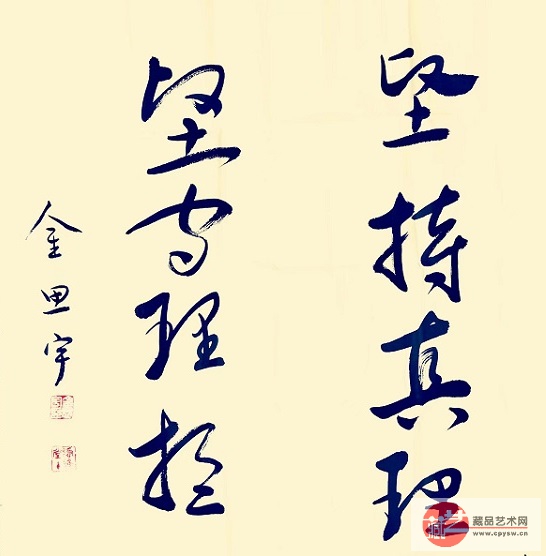 坚持真理
坚守理想
金思宇
藏品艺术网
www.cpysw.cn